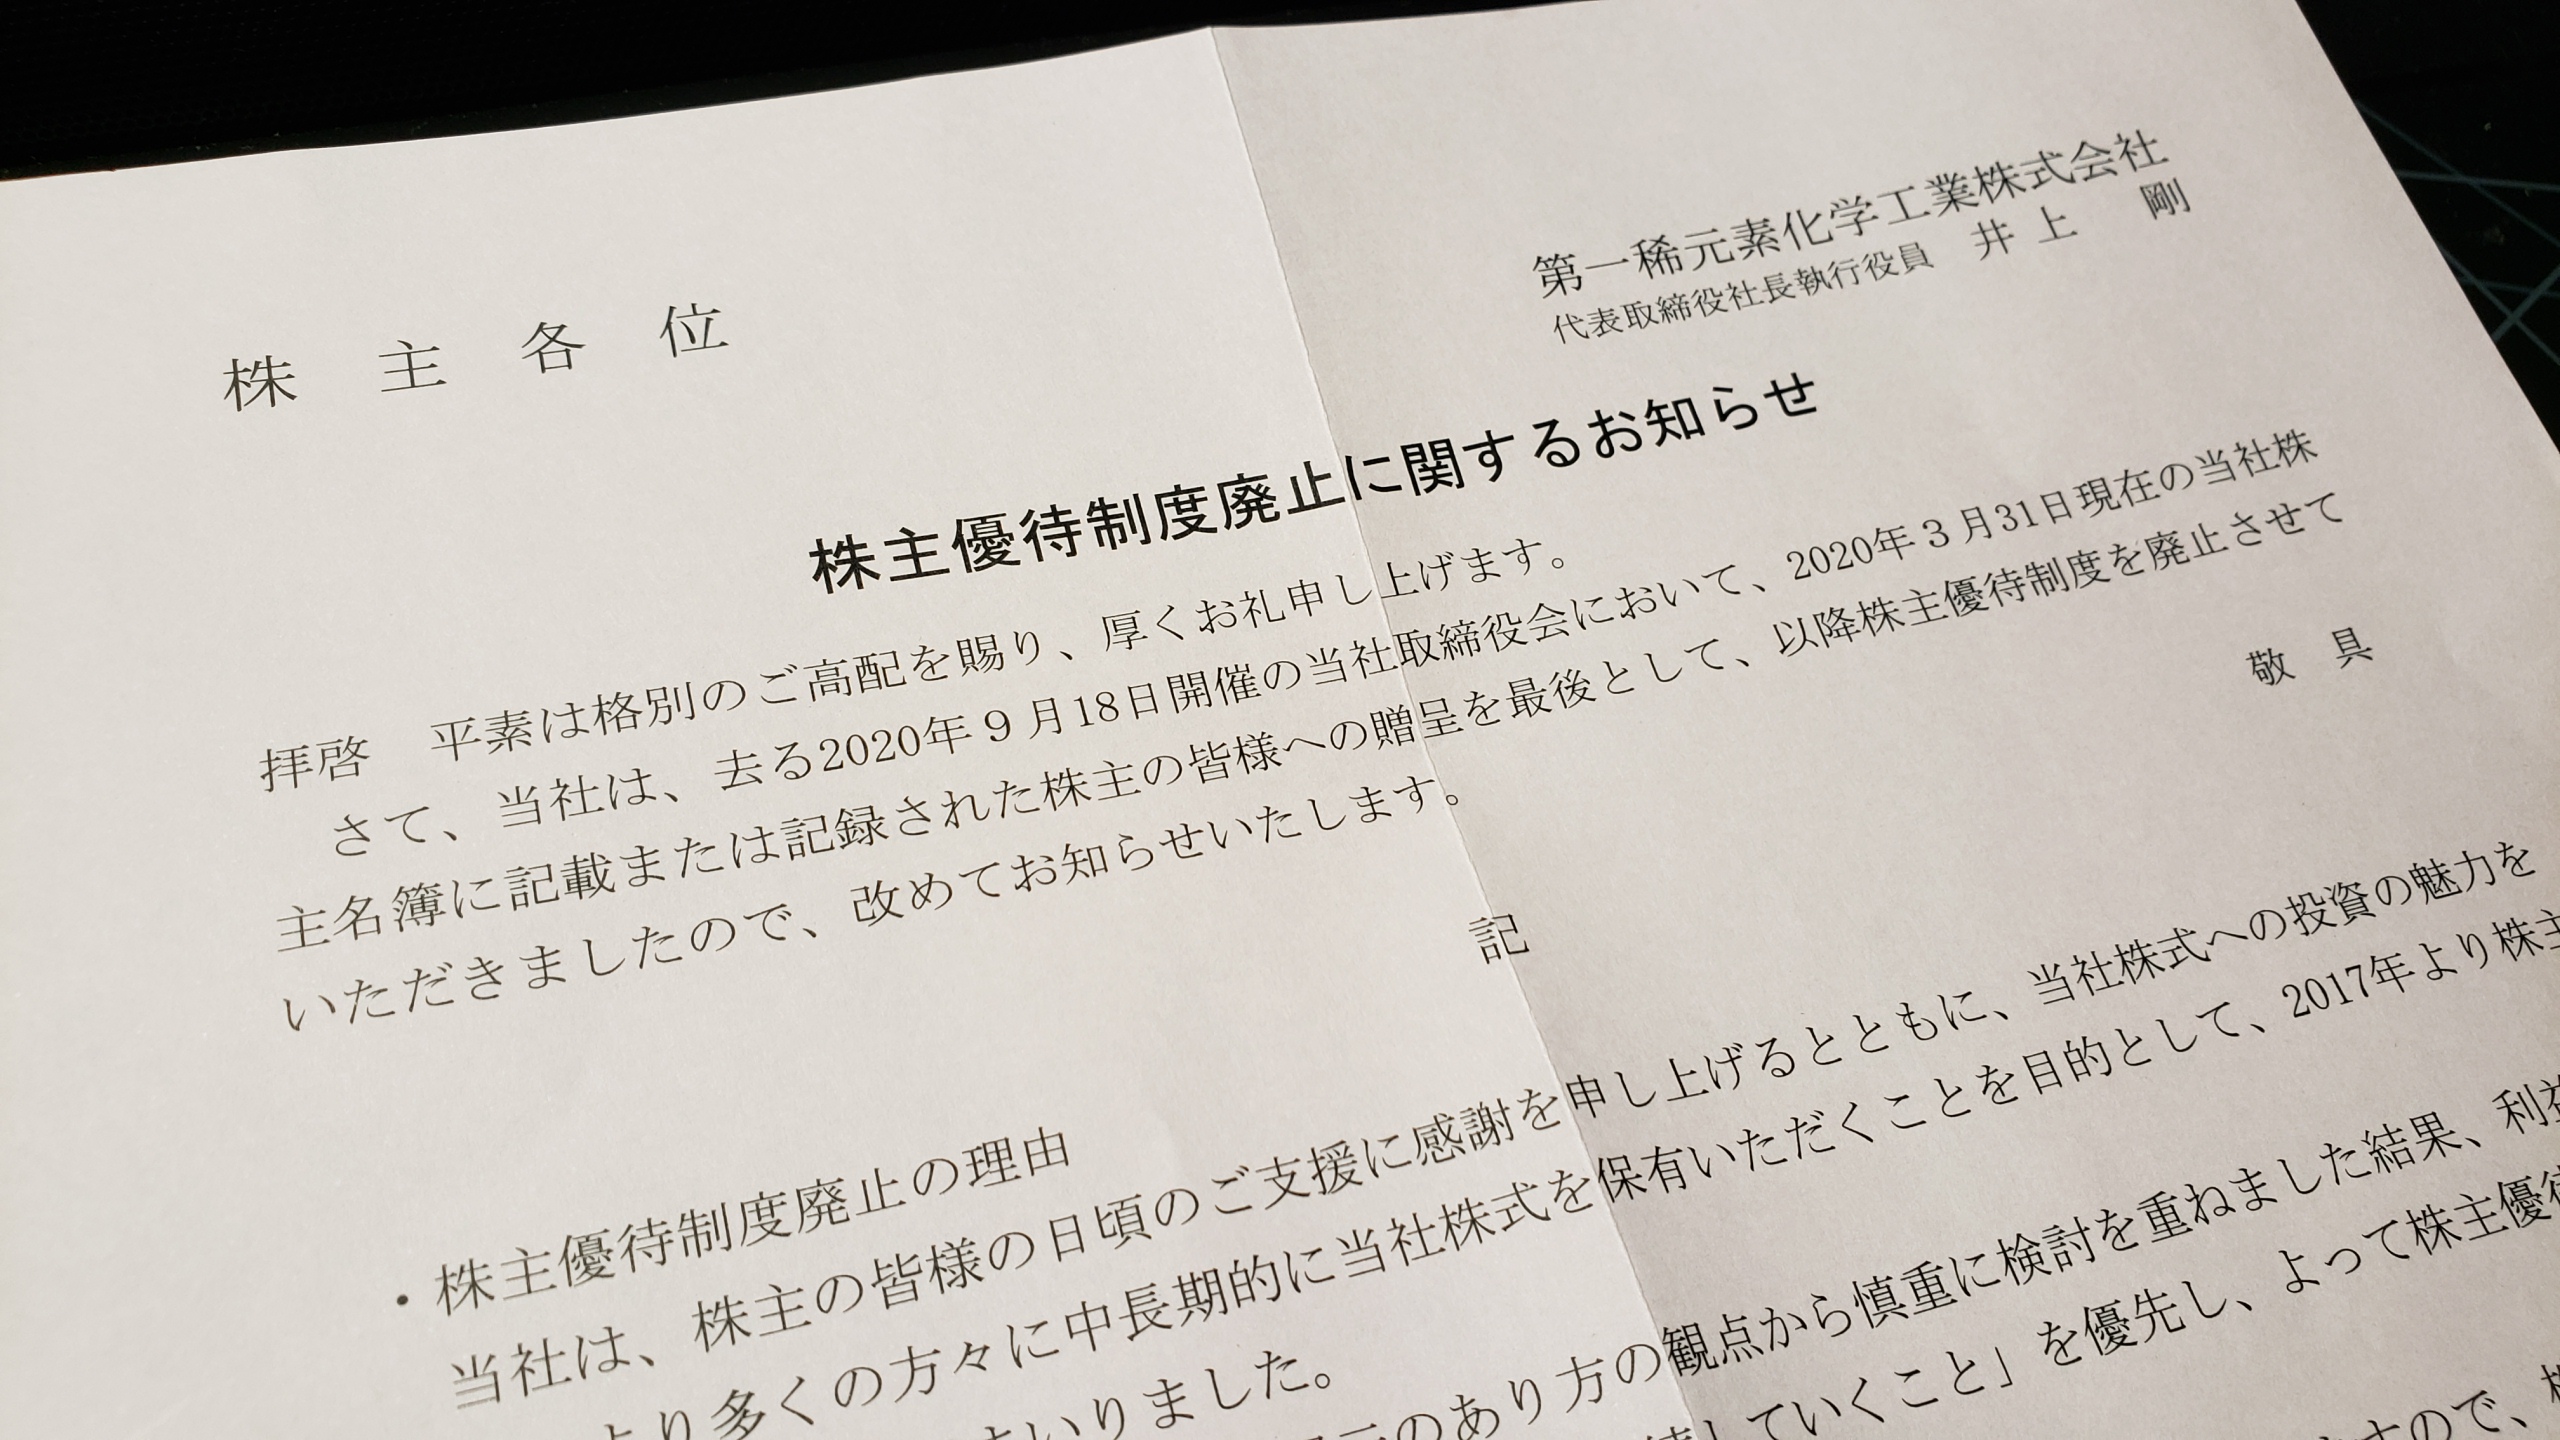 第一稀元素化学工業株式会社
代表取締役社長執行役員　井上　剛
株主各位
株主優待制度廃止に関するお知らせ
拝啓　平素は格別のご高配を賜り、厚くお礼申し上げます。
さて、当社は、去る2020年９月18日開催の当社取締役会において、2020年３月31日現在の当社株
主名簿に記載または記録された株主の皆様への贈呈を最後として、以降株主優待制度を廃止させて
いただきましたので、改めてお知らせいたします。
敬　具
記
・株主優待制度廃止の理由
当社は、株主の皆様の日頃のご支援に感謝を申し上げるとともに、当社株式への投資の魅力を
より多くの方々に中長期的に当社株式を保有いただくことを目的として、2017年より株主
いりました。
のあり方の観点から慎重に検討を重ねました結果、利益
していくこと」を優先し、よって株主優待
ますので、株